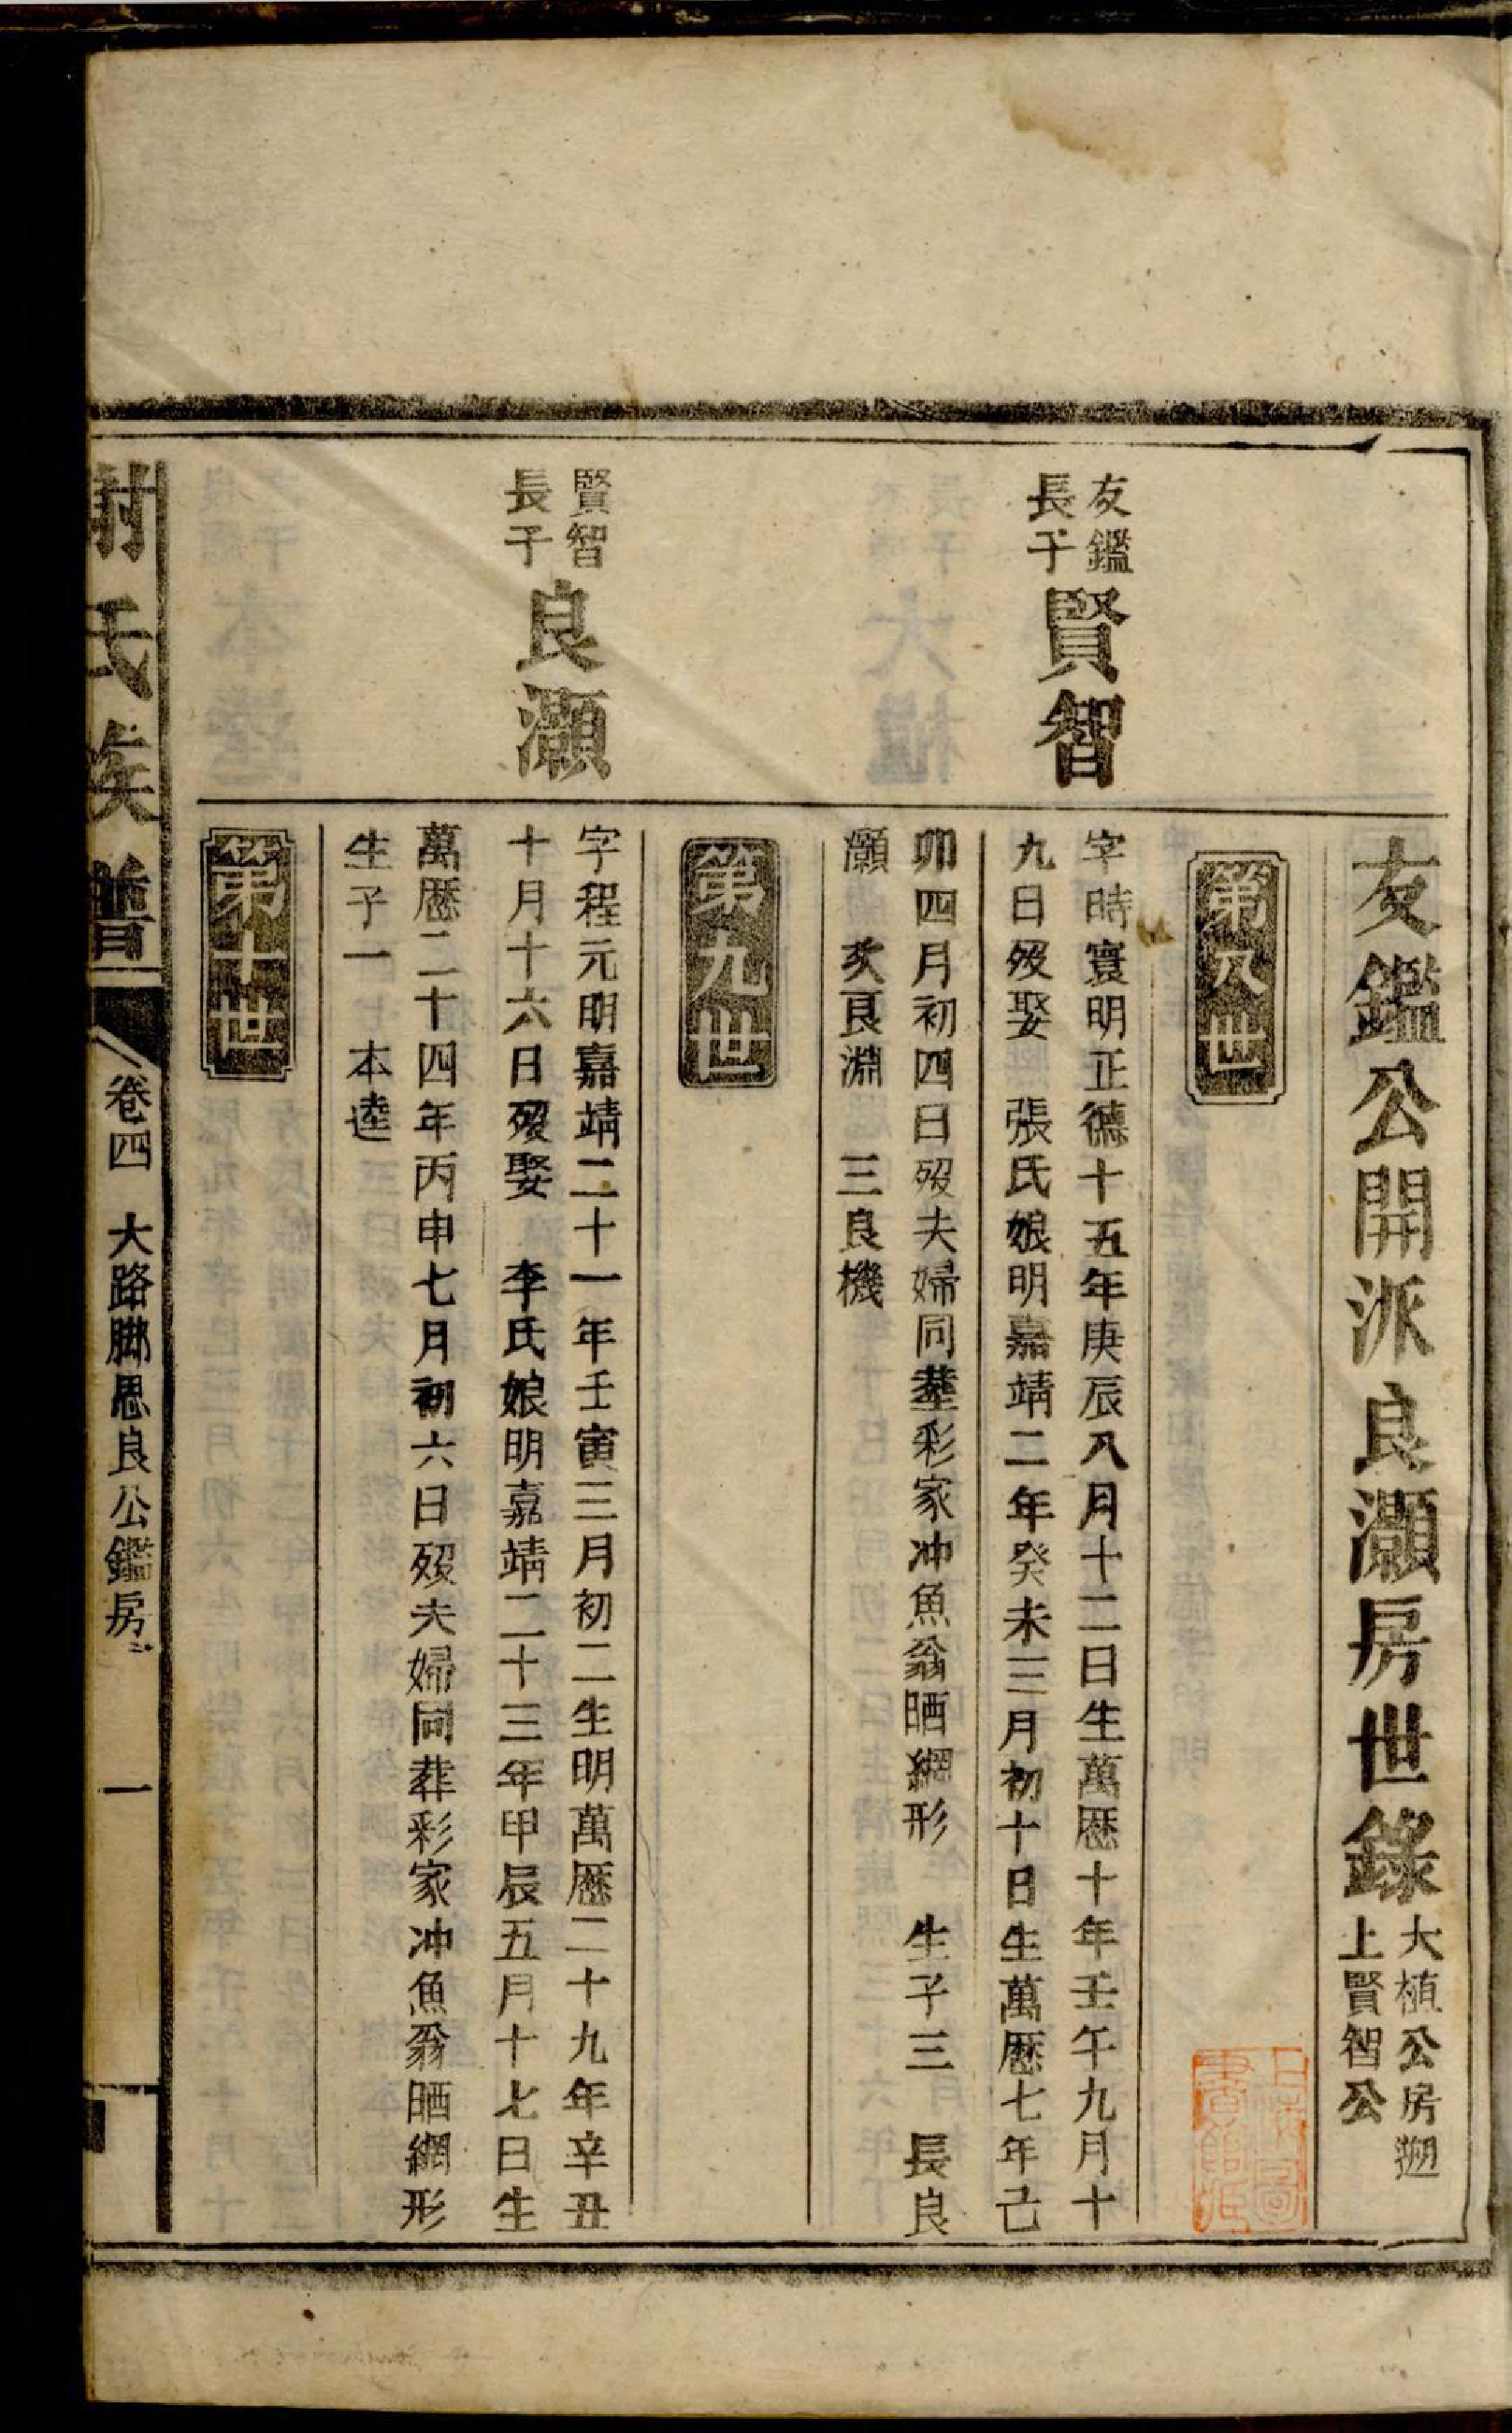 友鑑公開派良灝房世錄
大植公房遡
上賢智公
第八世
友鑑
長子
賢智
字時寰明正德十五年庚辰八月十二日生萬歷十年壬午九月十
九日歿娶 張氏娘明嘉靖二年癸未三月初十日生萬歷七年己
卯四月初四日歿夫婦同塟彩家冲魚翁晒網形 生子三 長良
灝 次良淵 三良機
第九世
賢智
長子
良灝
字程元明嘉靖二十一年壬寅三月初二生明萬歷二十九年辛丑
十月十六日歿娶 李氏娘明嘉靖二十三年甲辰五月十七日生
萬歷二十四年丙申七月初六日歿夫婦同葬彩家冲魚翁晒網形
生子一 本逵
第十世
謝氏族譜
卷四 大路脚思良公鑑房
一